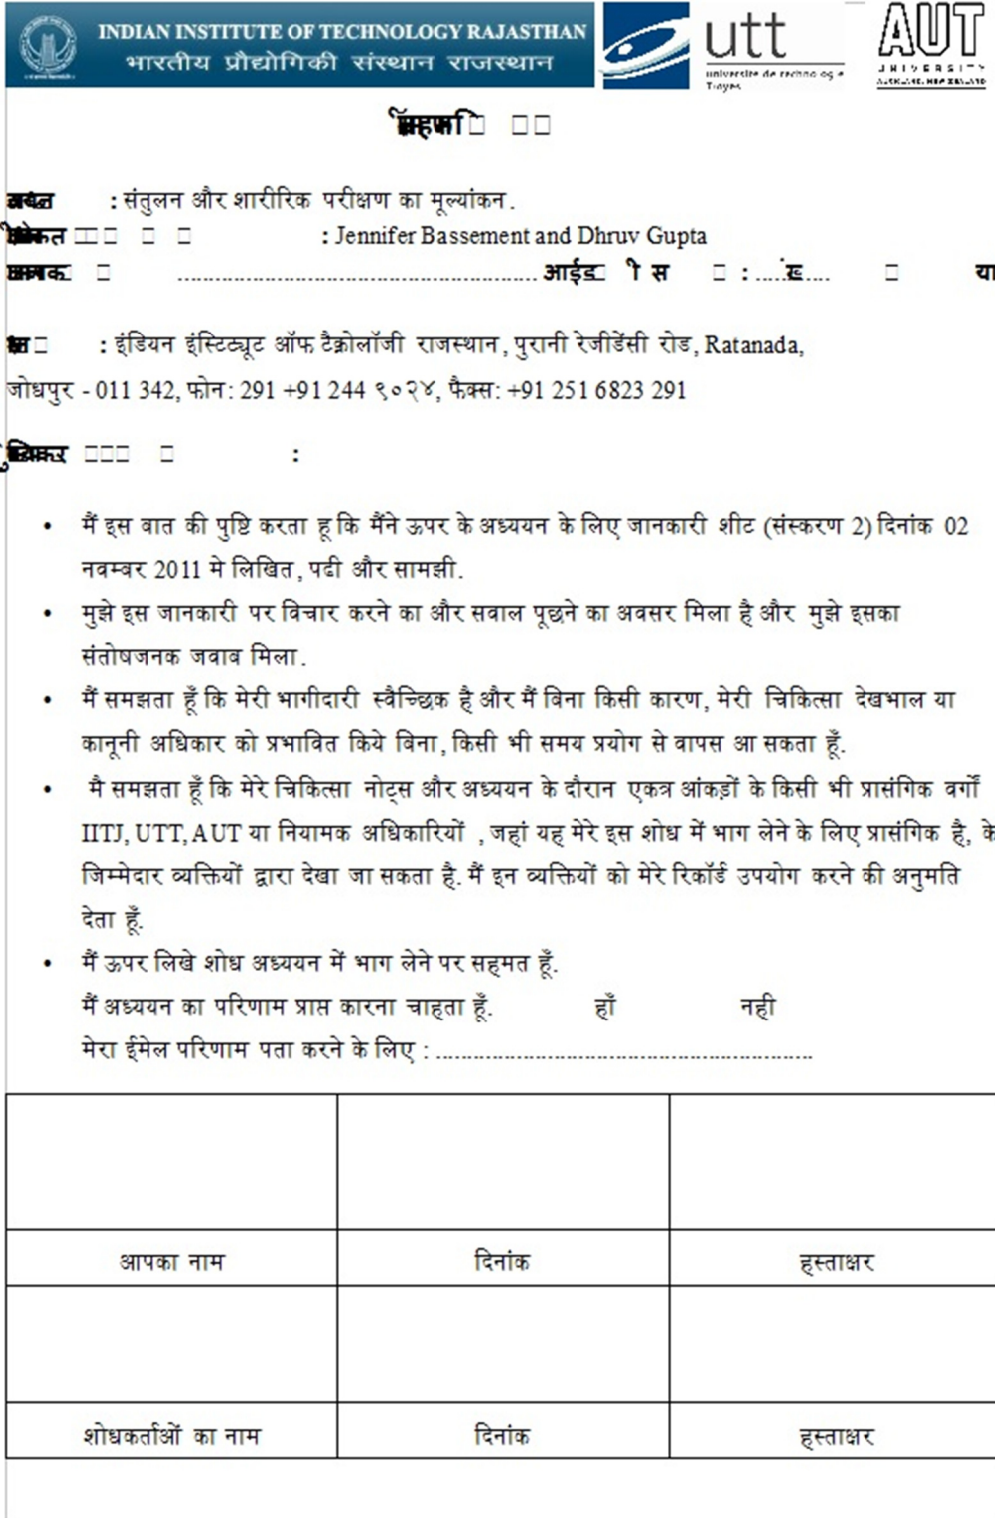 INDIAN INSTITUTE OF TECHNOLOGY RAJASTHAN
भारतीय प्रौद्योगिकी संस्थान राजस्थान
utt
université de technologie
Troyes
AUT
UNIVERSITY
AUCKLAND, NEW ZEALAND
: संतुलन और शारीरिक परीक्षण का मूल्यांकन.
: Jennifer Bassement and Dhruv Gupta
: इंडियन इंस्टिट्यूट ऑफ टैक्नोलॉजी राजस्थान, पुरानी रेजीडेंसी रोड, Ratanada,
जोधपुर - 011 342, फोन: 291 +91 244 ९०२४, फैक्स: +91 251 6823 291
:
• मैं इस बात की पुष्टि करता हू कि मैंने ऊपर के अध्ययन के लिए जानकारी शीट (संस्करण 2) दिनांक 02
नवम्बर 2011 मे लिखित, पढी और सामझी.
• मुझे इस जानकारी पर विचार करने का और सवाल पूछने का अवसर मिला है और मुझे इसका
संतोषजनक जवाब मिला.
• मैं समझता हूँ कि मेरी भागीदारी स्वैच्छिक है और मैं बिना किसी कारण, मेरी चिकित्सा देखभाल या
कानूनी अधिकार को प्रभावित किये बिना, किसी भी समय प्रयोग से वापस आ सकता हूँ.
• मै समझता हूँ कि मेरे चिकित्सा नोट्स और अध्ययन के दौरान एकत्र आंकड़ों के किसी भी प्रासंगिक वर्गों
IITJ, UTT, AUT या नियामक अधिकारियों , जहां यह मेरे इस शोध में भाग लेने के लिए प्रासंगिक है, के
जिम्मेदार व्यक्तियों द्वारा देखा जा सकता है. मैं इन व्यक्तियों को मेरे रिकॉर्ड उपयोग करने की अनुमति
देता हूँ.
• मैं ऊपर लिखे शोध अध्ययन में भाग लेने पर सहमत हूँ.
मैं अध्ययन का परिणाम प्राप्त कारना चाहता हूँ. हाँ नही
मेरा ईमेल परिणाम पता करने के लिए : ..........................................................
आपका नाम दिनांक हस्ताक्षर
शोधकर्ताओं का नाम दिनांक हस्ताक्षर